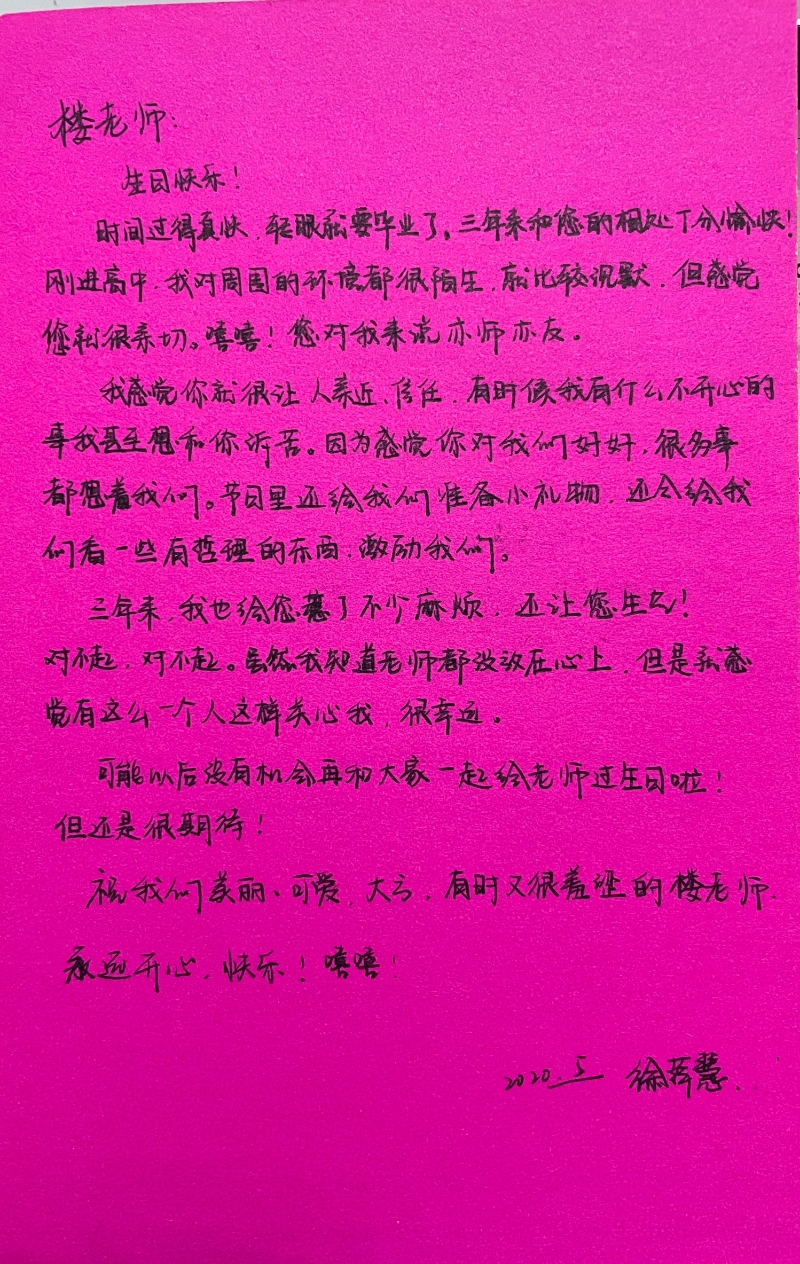 楼老师：
生日快乐！
时间过得真快，转眼就要毕业了。三年来和您的相处十分愉快！
刚进高中，我对周围的环境都很陌生，就比较沉默，但感觉
您就很亲切。嘻嘻！您对我来说亦师亦友。
我感觉你就很让人亲近、信任，有时候我有什么不开心的
事我甚至想和你诉苦。因为感觉你对我们好好，很多事
都想着我们。节日里还给我们准备小礼物，还会给我
们看一些有哲理的东西，激励我们。
三年来，我也给您惹了不少麻烦，还让您生气！
对不起，对不起。虽然我知道老师都没放在心上，但是就感
觉有这么一个人这样关心我，很幸运。
可能以后没有机会再和大家一起给老师过生日啦！
但还是很期待！
祝我们美丽、可爱，大方，有时又很羞涩的楼老师，
永远开心，快乐！嘻嘻！
2020.5 徐 慧